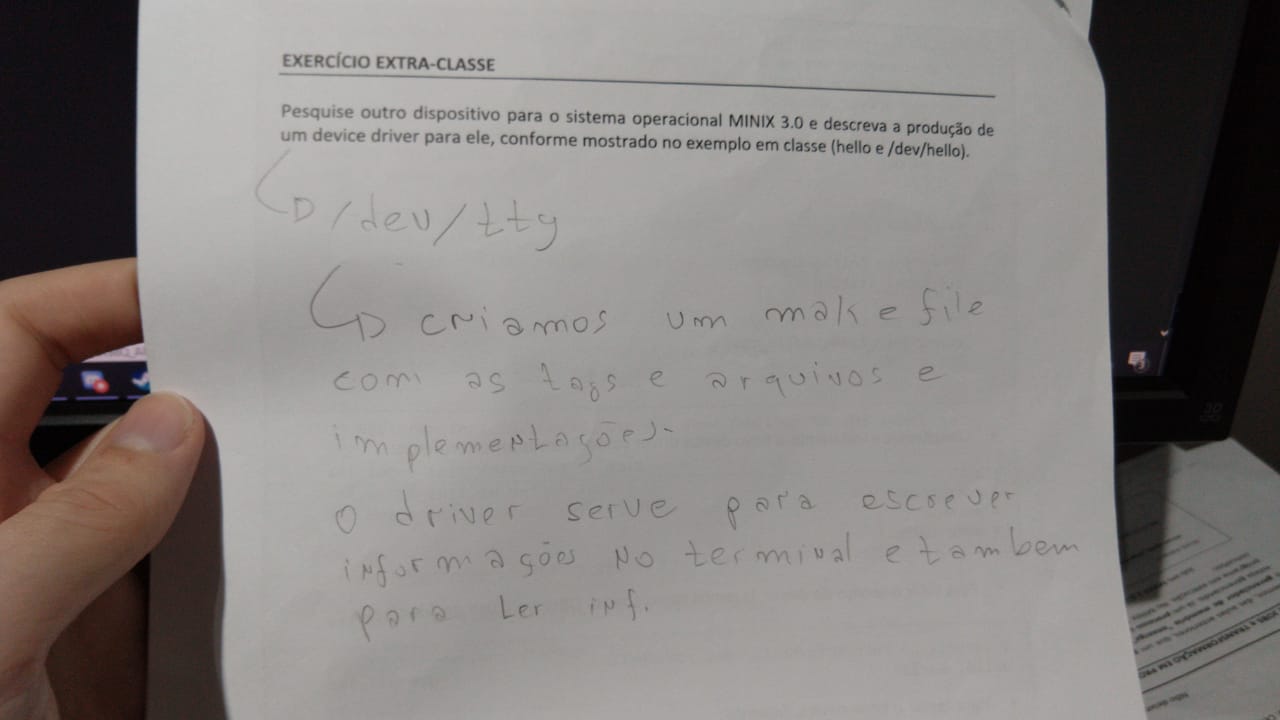 EXERCÍCIO EXTRA-CLASSE
Pesquise outro dispositivo para o sistema operacional MINIX 3.0 e descreva a produção de
um device driver para ele, conforme mostrado no exemplo em classe (hello e /dev/hello).
/dev/tty
criamos um makefile
com as tags e arquivos e
implementações.
O driver serve para escrever
informações no terminal e tambem
para ler inf.